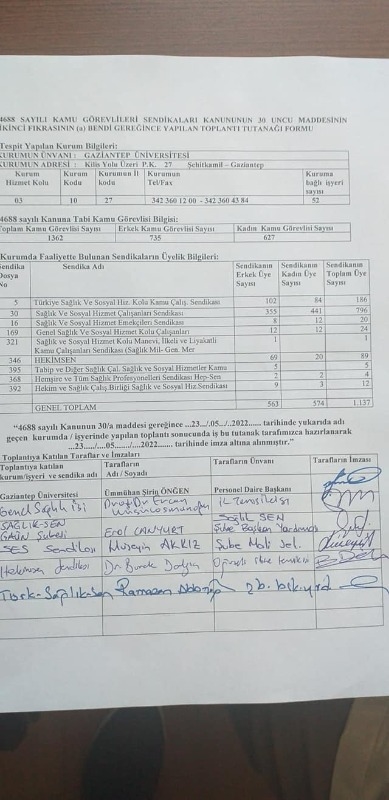 4688 SAYILI KAMU GÖREVLİLERİ SENDİKALARI KANUNUNUN 30 UNCU MADDESİNİN
İKİNCİ FIKRASININ (a) BENDİ GEREĞİNCE YAPILAN TOPLANTI TUTANAĞI FORMU
Tespit Yapılan Kurum Bilgileri:
KURUMUN ÜNVANI : GAZİANTEP ÜNİVERSİTESİ
KURUMUN ADRESİ : Kilis Yolu Üzeri P.K. 27 Şehitkamil - Gaziantep
Kurum Hizmet Kolu Kurum Kodu Kurumun İl kodu Kurumun Tel/Fax Kuruma bağlı işyeri sayısı
03 10 27 342 360 12 00 - 342 360 43 84 52
4688 sayılı Kanuna Tabi Kamu Görevlisi Bilgisi:
Toplam Kamu Görevlisi Sayısı Erkek Kamu Görevlisi Sayısı Kadın Kamu Görevlisi Sayısı
1362 735 627
Kurumda Faaliyette Bulunan Sendikaların Üyelik Bilgileri:
Sendika Dosya No Sendika Adı Sendikanın Erkek Üye Sayısı Sendikanın Kadın Üye Sayısı Sendikanın Toplam Üye Sayısı
5 Türkiye Sağlık Ve Sosyal Hiz. Kolu Kamu Çalış. Sendikası 102 84 186
30 Sağlık Ve Sosyal Hizmet Çalışanları Sendikası 355 441 796
16 Sağlık Ve Sosyal Hizmet Emekçileri Sendikası 8 12 20
169 Genel Sağlık Ve Sosyal Hizmet Kolu 12 12 24
321 Sağlık ve Sosyal Hizmet Kolu Manevi, İlkeli ve Liyakatli Kamu Çalışanları Sendikası (Sağlık Mil- Gen. Mer 1 1
346 HEKİMSEN 69 20 89
395 Tabip ve Diğer Sağlık Çal. Sağlık ve Sosyal Hizmetler Kamu 5 5
368 Hemşire ve Tüm Sağlık Profesyonelleri Sendikası Hep-Sen 2 2 4
392 Hekim ve Sağlık Çalış.Birliği Sağlık ve Sosyal Hiz.Sendikası 9 3 12
GENEL TOPLAM 563 574 1.137
"4688 sayılı Kanunun 30/a maddesi gereğince ..23.../.05../..2022...... tarihinde yukarıda adı
geçen kurumda / işyerinde yapılan toplantı sonucunda iş bu tutanak tarafımızca hazırlanarak
...23....../....05....../......2022....... tarihinde imza altına alınmıştır."
Toplantıya Katılan Taraflar ve İmzaları
Toplantıya katılan kurum/işyeri ve sendika adı Tarafların Adı / Soyadı Tarafların Ünvanı Tarafların İmzası
Gaziantep Üniversitesi Ümmühan Şirin ÖNGEN Personel Daire Başkanı
Genel Sağlık İşi Prof. Dr. Ercan İL Temsilcisi
SAĞLIK-SEN GAÜN Şubesi Erol CANYURT Sağlık SEN Şube Başkan Yardımcısı
SES Sendikası Hüseyin AKKIZ Şube Mali Sek.
Hekimsen Sendikası Dr. Burak
Türk-Sağlık-Sen Ramazan